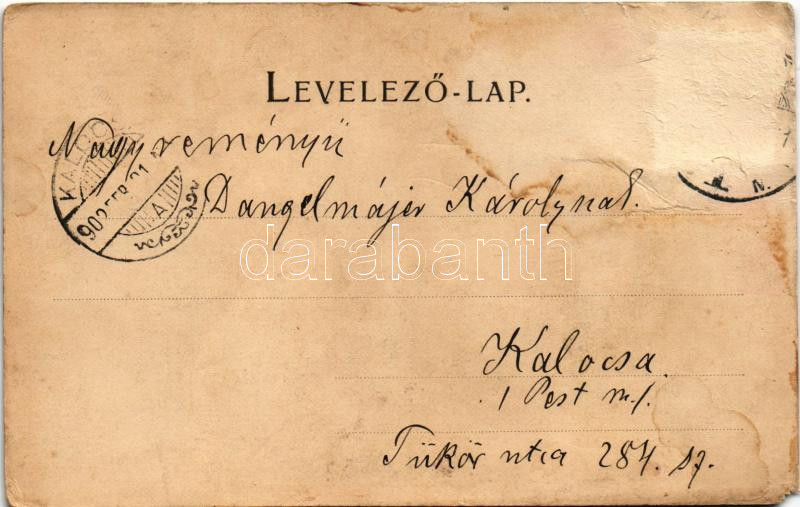 LEVELEZŐ-LAP.
Nagyreményü
Dangelmájer Károlynak.
Kalocsa.
/ Pest m./.
Tükör utca 284. sz.
KALOCSA
902 FEB. 21
darabanth